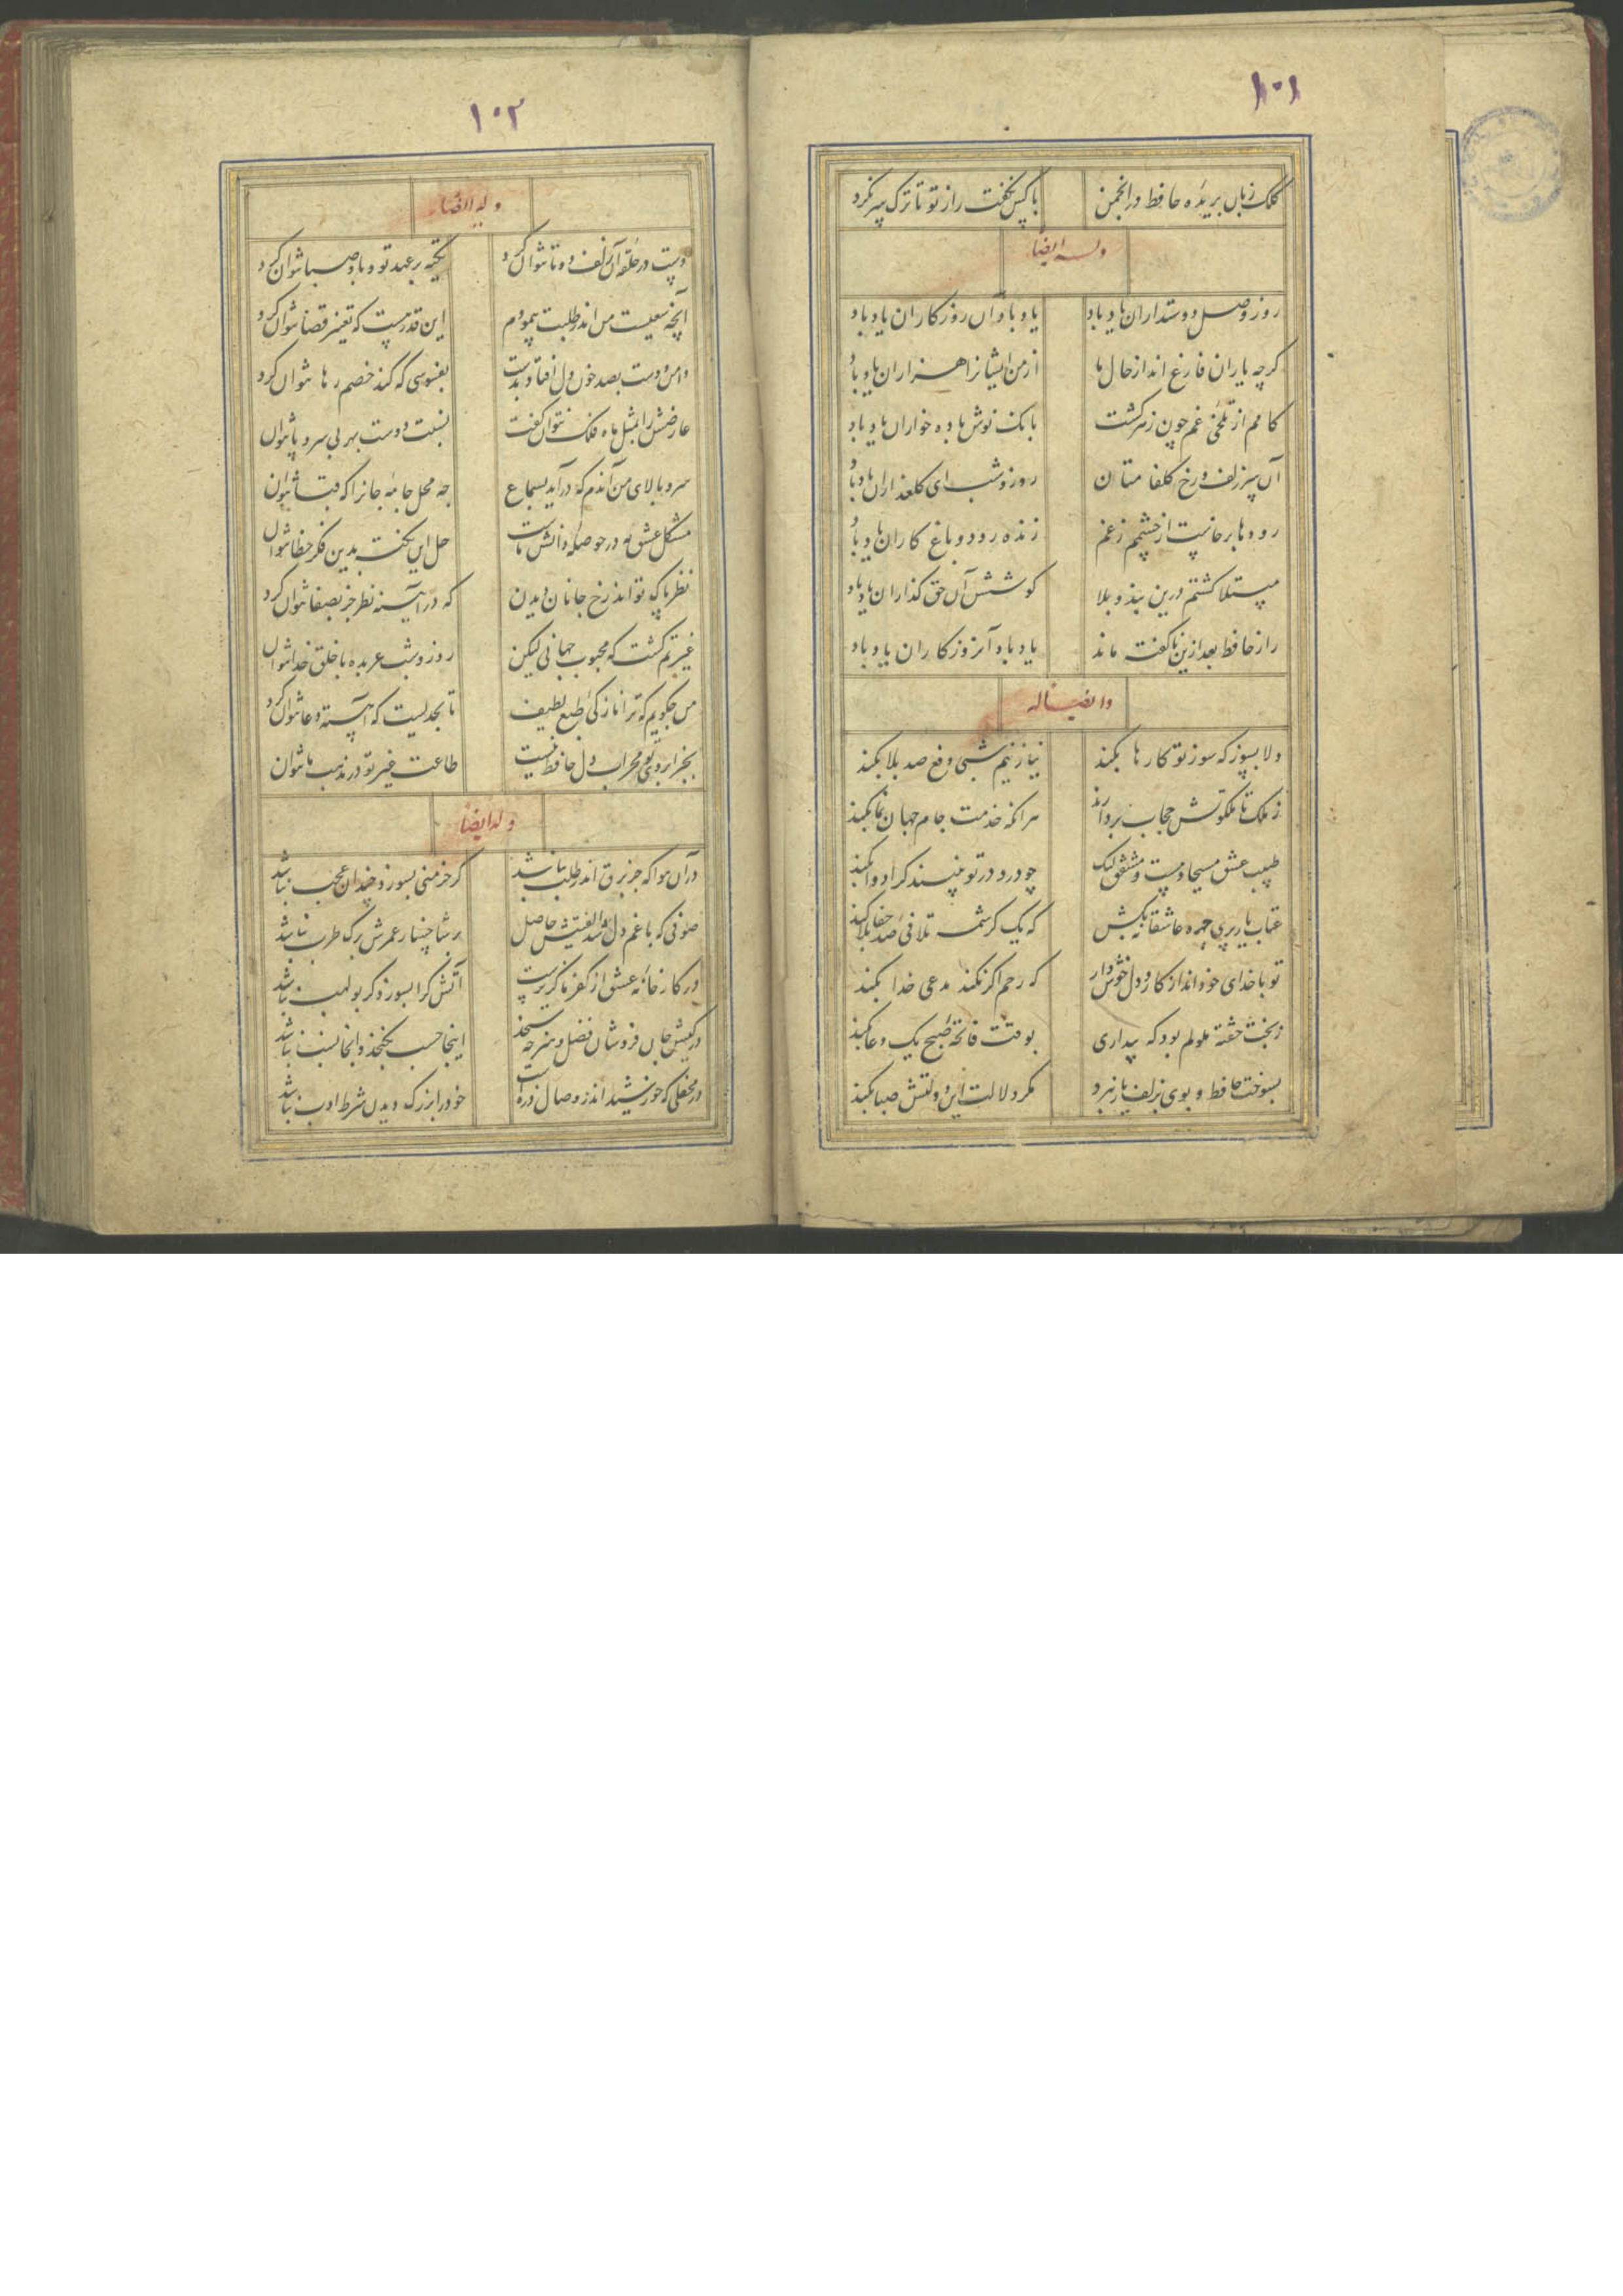 ۱۰۱
کلک زبان بریده حافظ در انجمن با کس نگفت راز تو تا ترک سر نکرد
وله ایضا
روز وصل دوستداران یاد باد یاد باد آن روزکاران یاد باد
کرچه یاران فارغ اند از حال ما از من ایشانرا هزاران یاد باد
کامم از تلخی غم چون زهر کشت بانک نوش باده خواران یاد باد
آن سر زلف و رخ کلفامتان روز و شب ای کلعذاران یاد باد
رودها برخاست از چشمم ز غم زنده رود و باغ کاران یاد باد
مبتلا کشتم درین بند و بلا کوشش آن حق کذاران یاد باد
راز حافظ بعد ازین ناکفته ماند یاد باد آنروزکاران یاد باد
وایضا له
دلا بسوز که سوز تو کارها بکند نیاز نیم شبی دفع صد بلا بکند
ز ملک تا ملکوتش حجاب بردارند هر آنکه خدمت جام جهان نما بکند
طبیب عشق مسیحا دمست و مشفق لیک چو درد در تو نبیند کرا دوا بکند
عتاب یار پری چهره عاشقانه بکش که یک کرشمه تلافی صد جفا بکند
تو با خدای خود انداز کار و دل خوش دار که رحم اکر نکند مدعی خدا بکند
ز بخت خفته ملولم بود که بیداری بوقت فاتحه صبح یک دعا بکند
بسوخت حافظ و بوی بزلف یار نبرد مکر دلالت این دولتش صبا بکند
۱۰۲
وله ایضا
دست در حلقه آن زلف دوتا نتوان کرد تکیه بر عهد تو و باد صبا نتوان کرد
آنچه سعیست من اندر طلبت بنمودم این قدر هست که تغییر قضا نتوان کرد
دامن دوست بصد خون دل افتاد بدست بفسوسی که کند خصم رها نتوان کرد
عارضش را بمثل ماه فلک نتوان کفت نسبت دوست بهر بی سر و پا نتوان
سرو بالای من آندم که درآید بسماع چه محل جامه جانرا که قبا نتوان
مشکل عشق نه در حوصله دانش ماست حل این نکته بدین فکر خطا نتوان
نظر پاک تواند رخ جانان دیدن که در آیینه نظر جز بصفا نتوان کرد
غیرتم کشت که محبوب جهانی لیکن روز و شب عربده با خلق خدا نتوان
من چکویم که ترا نازکی طبع لطیف تا بحدیست که آهسته دعا نتوان کرد
بجز ابروی تو محراب دل حافظ نیست طاعت غیر تو در مذهب ما نتوان
وله ایضا
در آن هوا که جز برق اندر طلب نباشد کر خرمنی بسوزد چندان عجب نباشد
که با غم دل شد الفتیش حاصل بر شاخسار عمرش برک طرب نباشد
در کارخانه عشق از کفر ناکزیرست آتش کرا بسوزد کر بولهب نباشد
در کیش جان فروشان فضل و هنر چه سنجد اینجا حسب نکنجد و انجا نسب نباشد
در محفلی که خورشید اندر وصال ذره است خود را بزرک دیدن شرط ادب نباشد